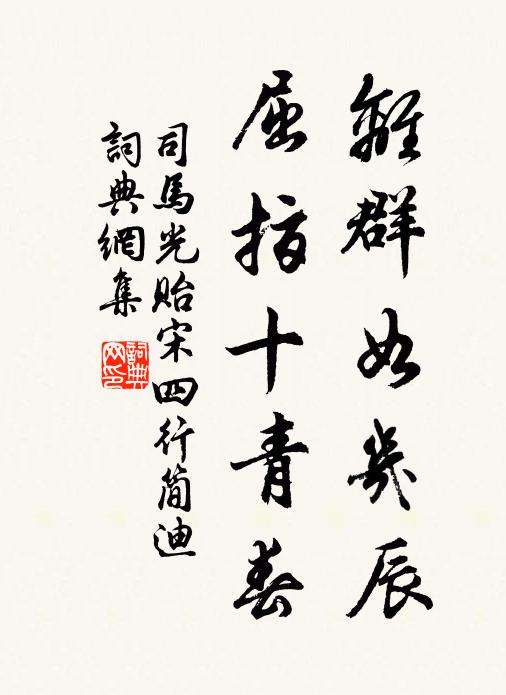 離群如幾辰
屈指十青春
司馬光貽宋四行簡迪
詞典網集
詞典網印